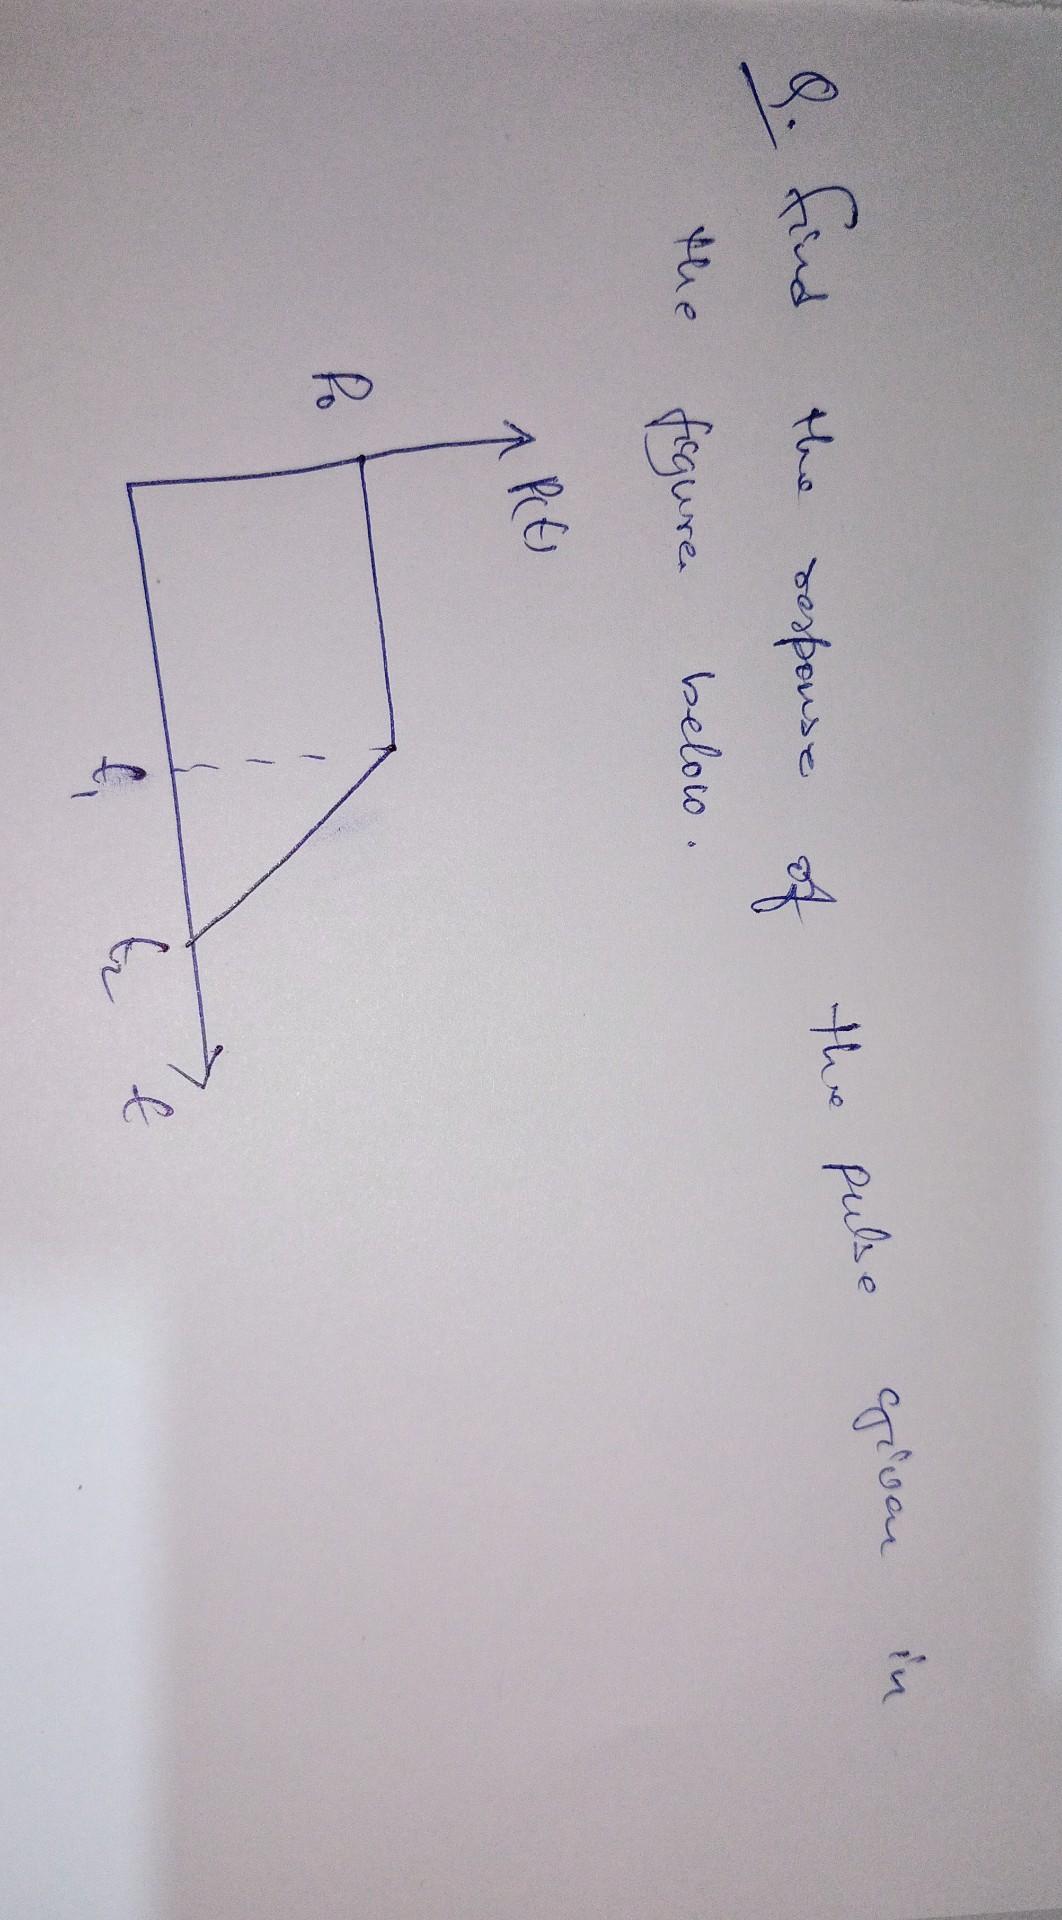 Q. Find the response of the pulse given in
the figure below.
P(t)
P₀
t₁
t₂
t